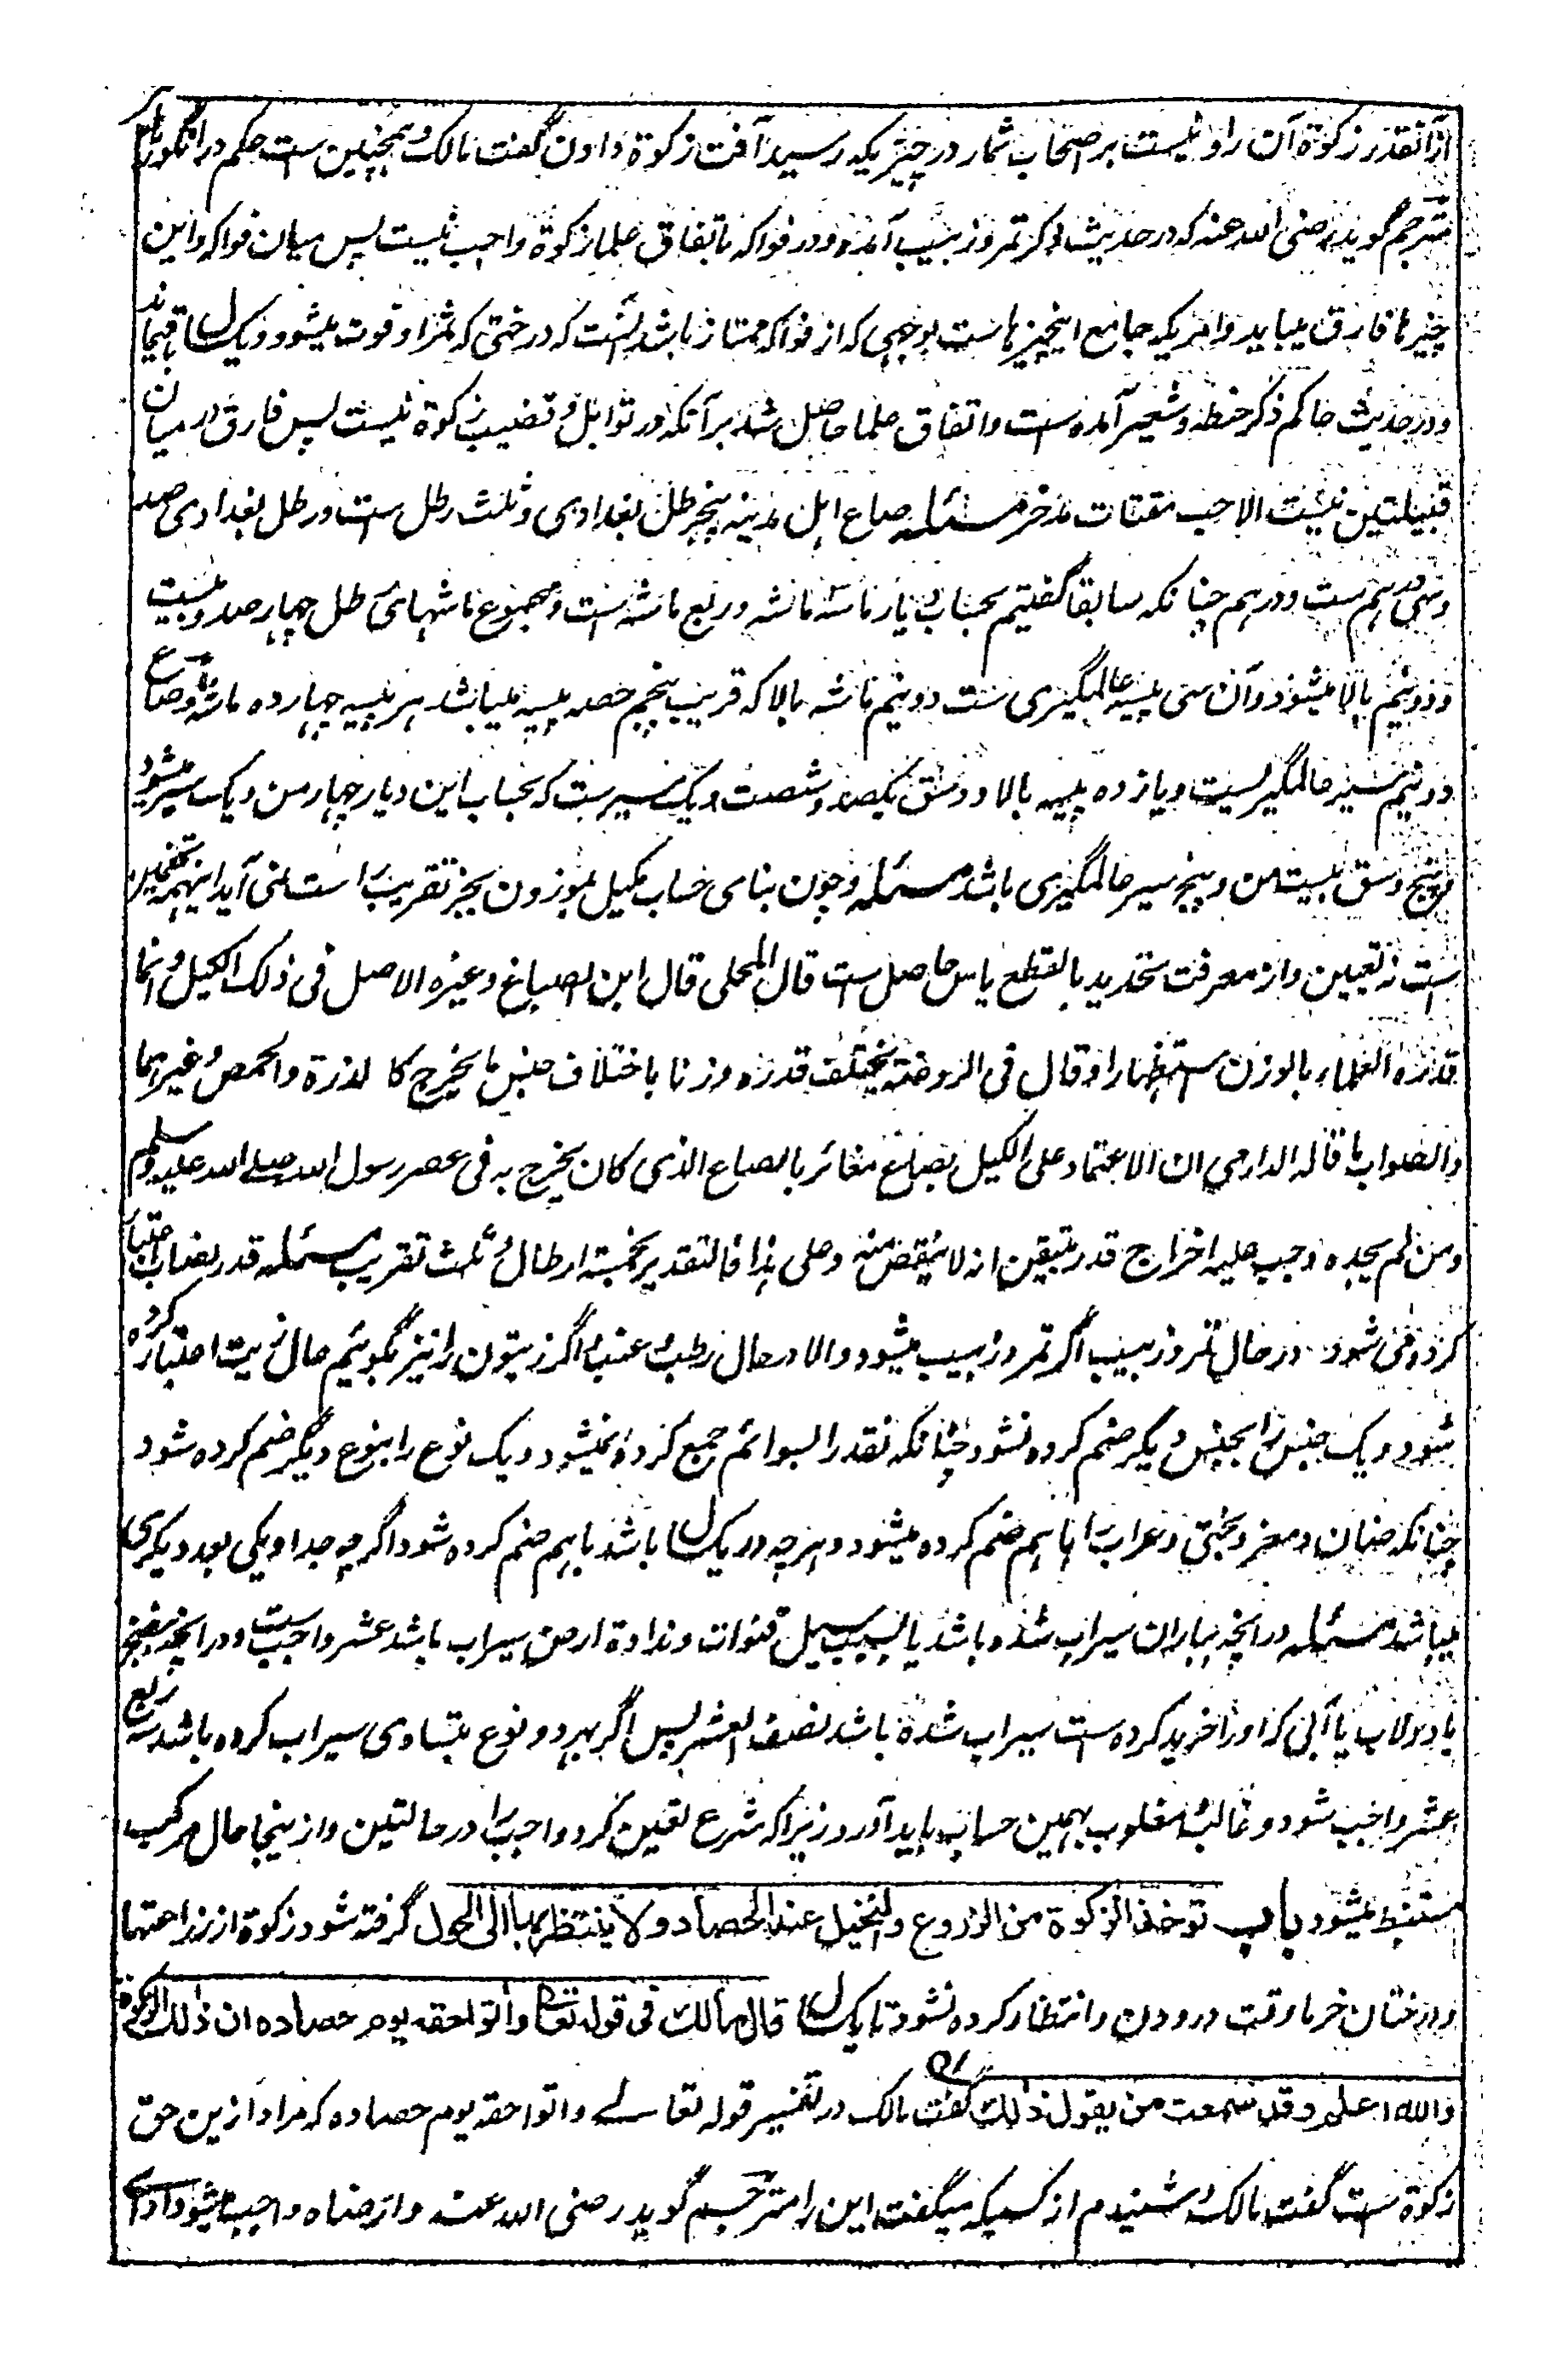 ازآنقدر زکوة آن را ونیست بر اصحاب ثمار در چیزیکه رسید آفت زکوة دادن گفت مالک و همچنین ست حکم در انگورها
مترجم گوید رضی الله عنه که در حدیث ذکر تمر و زبیب آمده و در فواکه باتفاق علما زکوة واجب نیست پس میان فواکه و این
چیزها فارق میباید و امریکه جامع اینچیزهاست بوجهی که از فواکه ممتاز باشد آنست که درختی که ثمر او قوت میشود و یکسال باقیماند
و در حدیث حاکم ذکر حنطه و شعیر آمده ست و اتفاق علما حاصل شد بر آنکه در توابل و قضیب زکوة نیست پس فارق در میان
قبیلتین نیست الا حب مقتات مدخر مسئله صاع اهل مدینه پنج رطل بغدادی و ثلث رطل ست و رطل بغدادی صد
و سی درهم ست و درهم چنانکه سابقا گفتیم بحساب این دیار سه ماشه و ربع ماشه است و مجموع ماشهای رطل چهار صد و بیست
و دو نیم بالا میشود و آن سی پیسه عالمگیری ست دو نیم ماشه بالا که قریب پنجم حصه پیسه میباشد هر پیسه چهارده ماشه و صاع
دو نیم سیر عالمگیریست و یازده پیسه بالا و وسق یکصد و شصت و یک سیرست که بحساب این دیار چهار من و یک سیر میشود
و پنج وسق بیست من و پنج سیر عالمگیری باشد مسئله و چون بنای حساب مکیل بموزون بجز تقریب راست نمی آید اینهمه تخمین
ست نه تعیین و از معرفت تحدید بالقطع یاس حاصل ست قال المحلی قال ابن الصباغ وغیره الاصل فی ذلک الکیل و انما
قدره العلماء بالوزن استظهارا وقال فی الروضة یختلف قدره وزنا باختلاف جنس ما یخرج کالذرة والحمص وغیرهما
والصواب ما قاله الدارمی ان الاعتماد علی الکیل بصاع مغائر بالصاع الذی کان یخرج به فی عصر رسول الله صلے الله علیه وسلم
ومن لم یجده وجب علیه اخراج قدر یتیقن انه لا ینقص منه وعلی هذا فالتقدیر بخمسة ارطال و ثلث تقریب مسئله قدر نصاب اعتبار
کرده می شود در حال تمر و زبیب اگر تمر و زبیب میشود والا در حال رطب و عنب و اگر زیتون را نیز گوئیم حال زیت اعتبار کرده
شود و یک جنس را بجنس دیگر ضم کرده نشود چنانکه نقد را بسوائم جمع کرده نمیشود و یک نوع را بنوع دیگر ضم کرده شود
چنانکه ضان و معز و بختی و عراب را باهم ضم کرده میشود و هرچه در یکسال باشد باهم ضم کرده شود اگرچه جدا و یکی بعد دیگری
میباشد مسئله در آنچه بباران سیراب شده باشد یا بسبب سیل قنوات و نداوة ارض سیراب باشد عشر واجب ست و در آنچه بنضح
یا دولاب یا آبی که او را خرید کرده ست سیراب شده باشد نصف العشر پس اگر بهر دو نوع بتساوی سیراب کرده باشد سه ربع
عشر واجب شود و غالب و مغلوب بهمین حساب باید آورد زیرا که شرع تعیین کرد واجب را در حالتین و ازینجا حال مرکب
مستنبط میشود باب توخذ الزکوة من الزروع والنخیل عند الحصاد ولا ینتظر بها الی الحول گرفته شود زکوة از زراعتها
و درختان خرما وقت درودن و انتظار کرده نشود تا یکسال قال مالک فی قوله تعالی واٰتوا حقه یوم حصاده ان ذلک الزکوة
والله اعلم وقد سمعت من یقول ذلک گفت مالک در تفسیر قوله تعالے واتوا حقه یوم حصاده که مراد ازین حق
زکوة ست گفت مالک و شنیدم از کسیکه میگفت این را مترجم گوید رضی الله عنه و از ضاه واجب میشود ادای